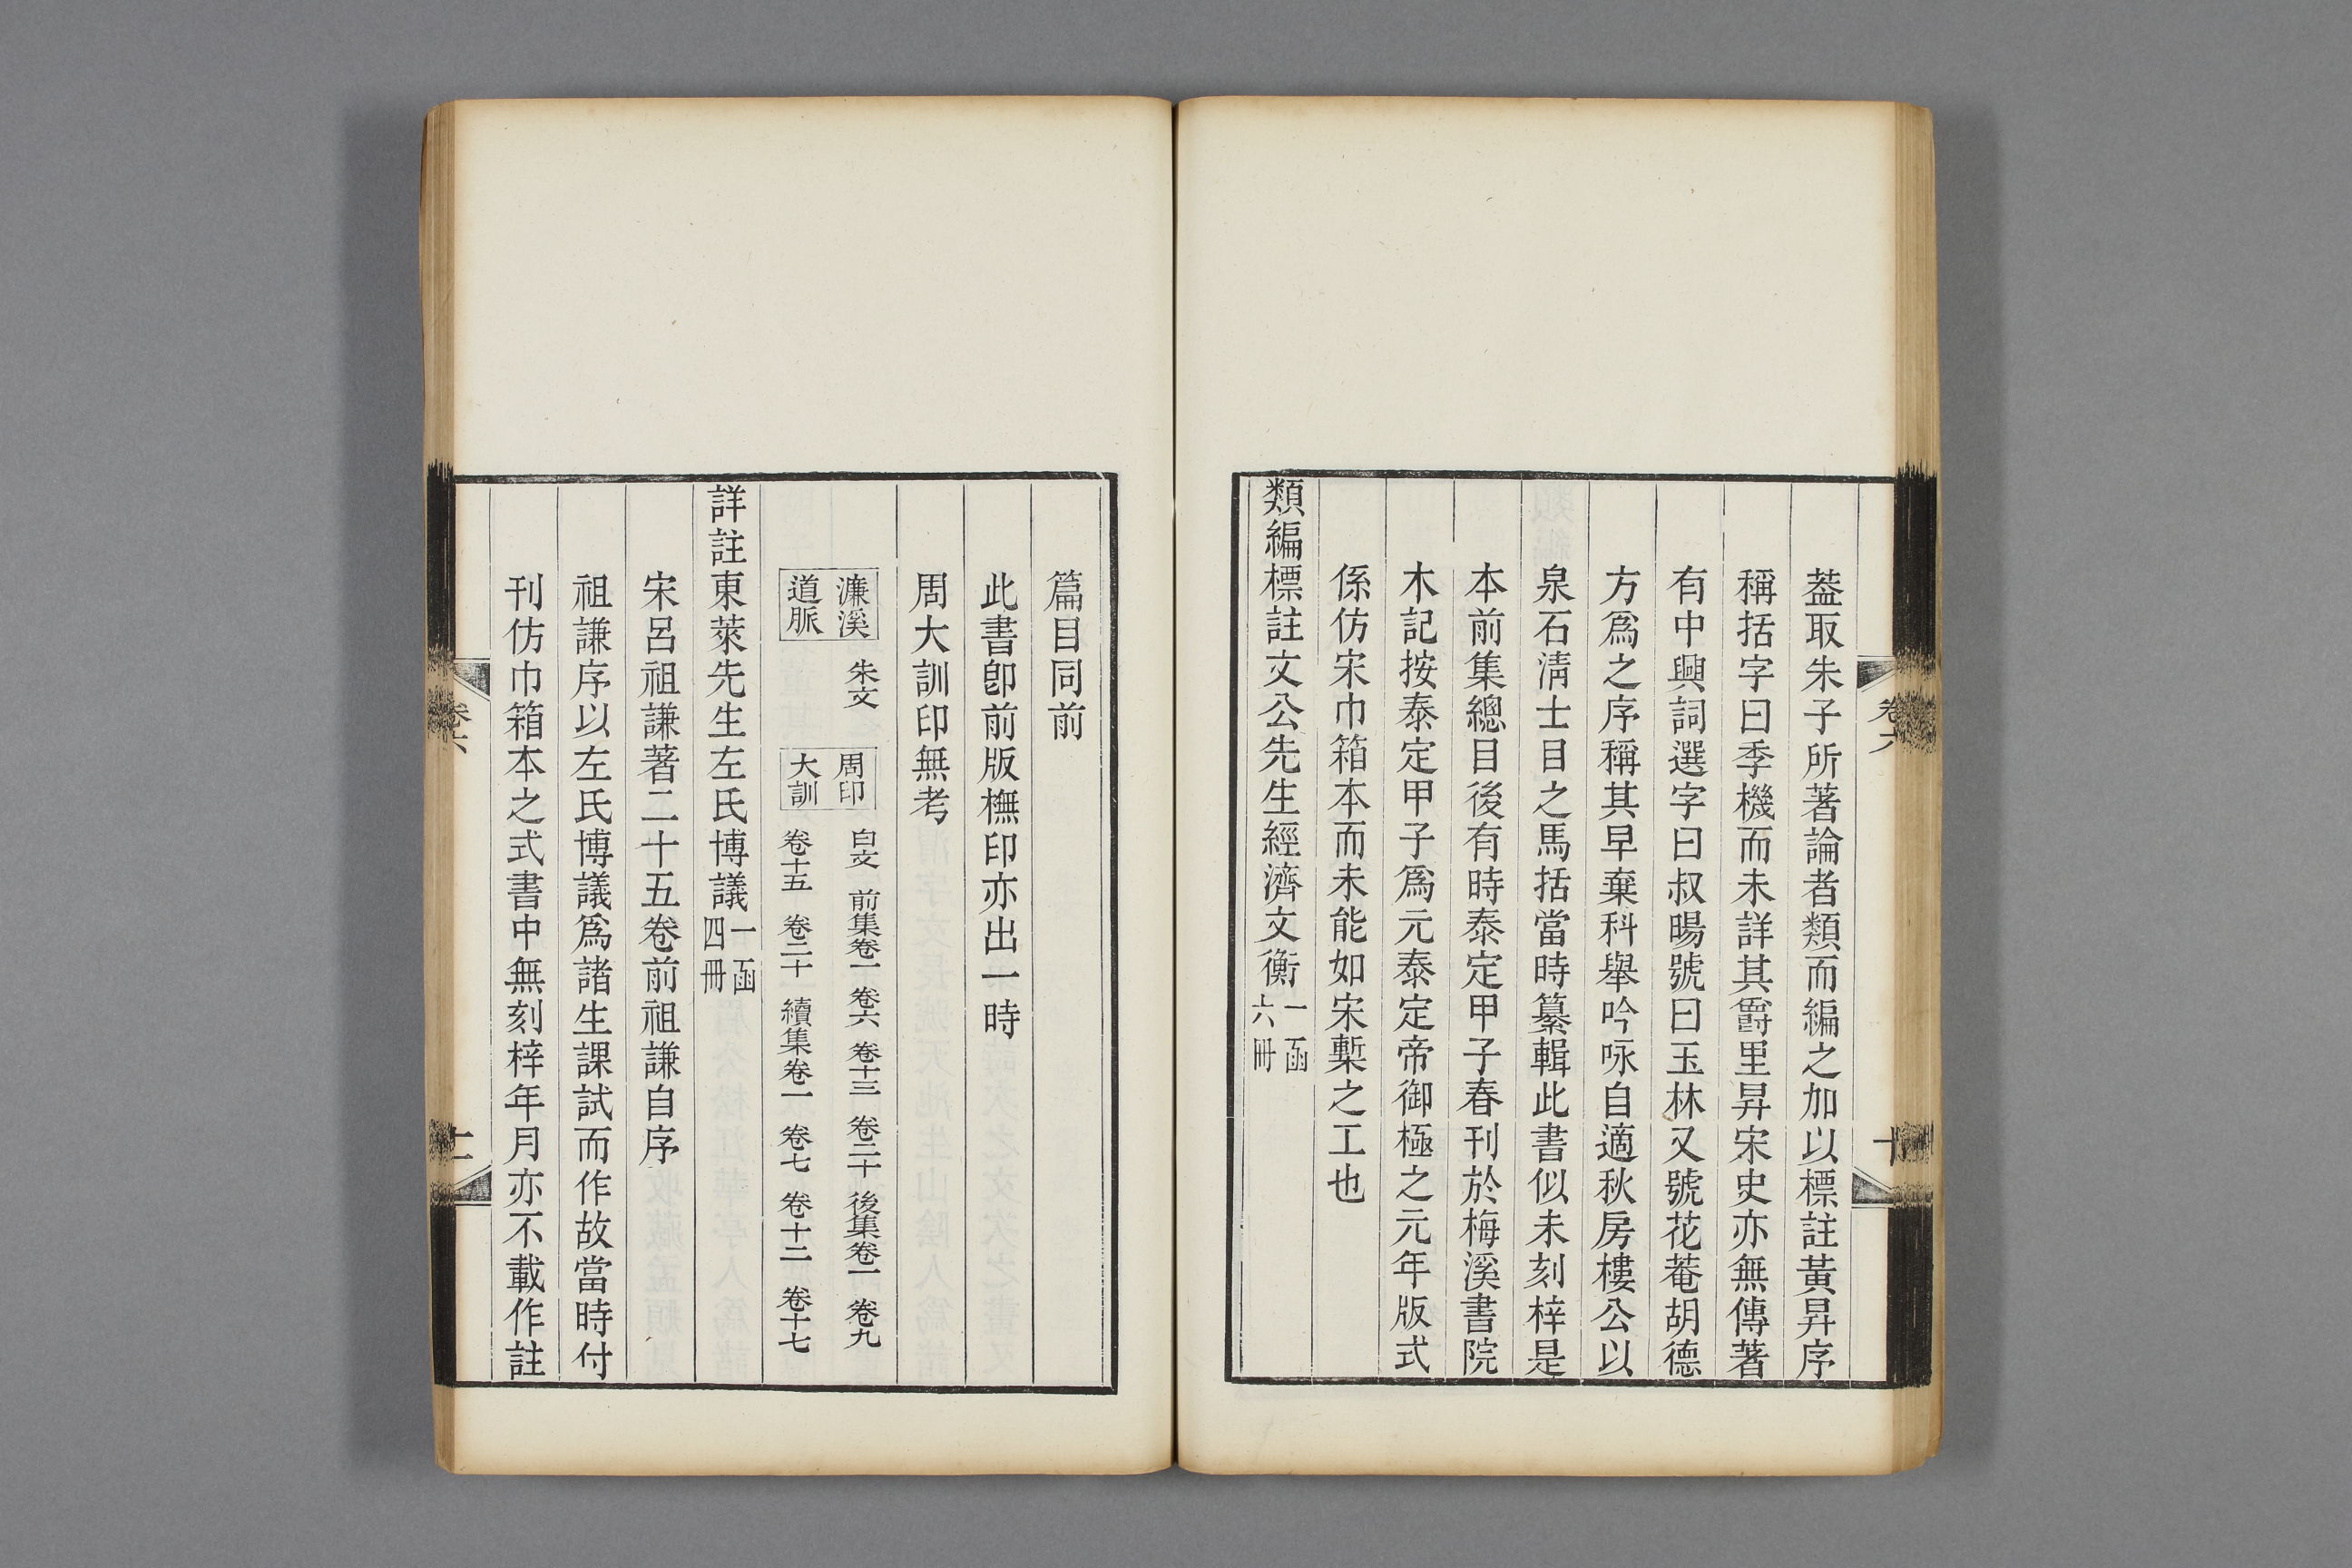 蓋取朱子所著論者類而編之加以標註黃昇序
稱括字曰季機而未詳其爵里昇宋史亦無傳著
有中興詞選字曰叔暘號曰玉林又號花菴胡德
方爲之序稱其早棄科舉吟咏自適秋房樓公以
泉石淸士目之馬括當時纂輯此書似未刻梓是
本前集總目後有時泰定甲子春刊於梅溪書院
木記按泰定甲子爲元泰定帝御極之元年版式
係仿宋巾箱本而未能如宋槧之工也
類編標註文公先生經濟文衡 一函
六冊
卷六
十
篇目同前
此書卽前版橅印亦出一時
周大訓印無考
濂溪
道脈
朱文
周印
大訓
白文 前集卷一 卷六 卷十三 卷二十 後集卷一 卷九
卷十五 卷二十一 續集卷一 卷七 卷十二 卷十七
詳註東萊先生左氏博議 一函
四冊
宋呂祖謙著二十五卷前祖謙自序
祖謙序以左氏博議爲諸生課試而作故當時付
刊仿巾箱本之式書中無刻梓年月亦不載作註
卷六
十一